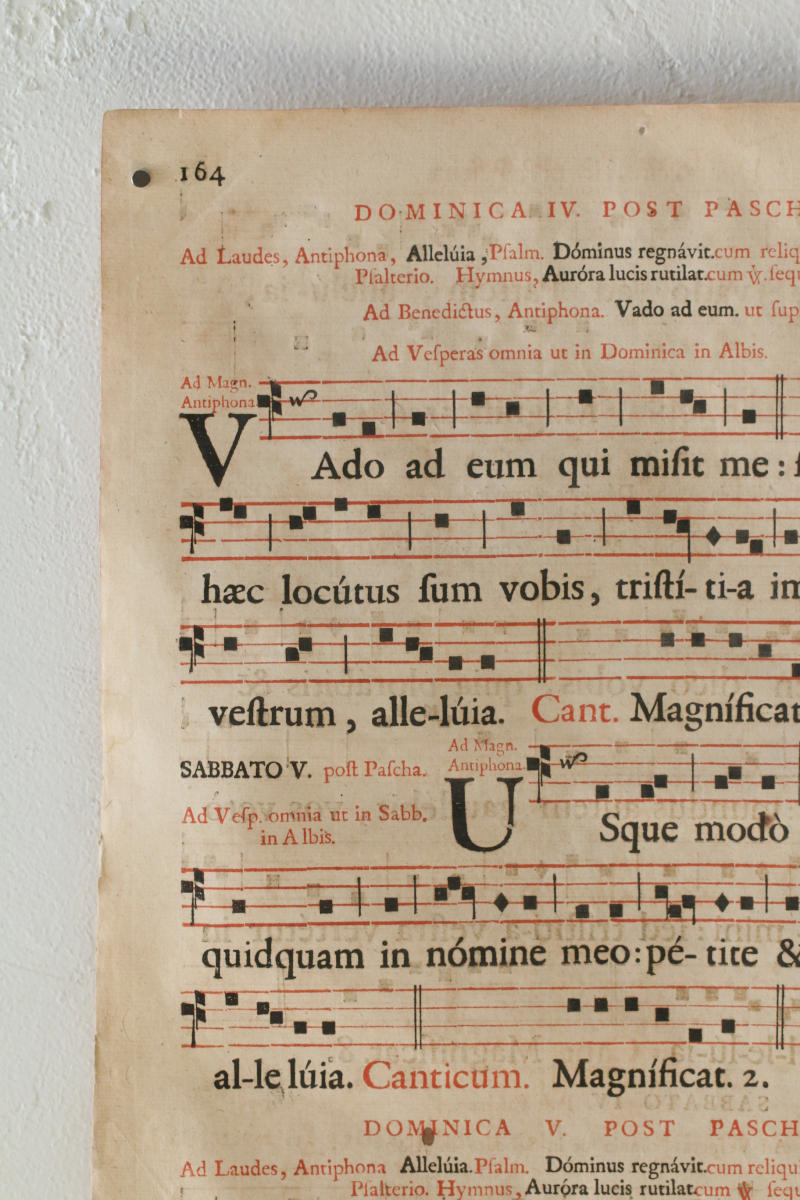 164
DOMINICA IV. POST PASCH
Ad Laudes, Antiphona, Allelúia, Pſalm. Dóminus regnávit. cum reliq
Pſalterio. Hymnus, Auróra lucis rutilat. cum ℣. ſequ
Ad Benedictus, Antiphona. Vado ad eum. ut ſup
Ad Veſperas omnia ut in Dominica in Albis.
Ad Magn.
Antiphona
VAdo ad eum qui miſit me: ſ
hæc locútus ſum vobis, triſtí-ti-a im
veſtrum, alle-lúia. Cant. Magníficat
SABBATO V. poſt Paſcha.
Ad Veſp. omnia ut in Sabb.
in Albis.
Ad Magn.
Antiphona
USque modò
quidquam in nómine meo: pé-tite &
al-le lúia. Canticum. Magníficat. 2.
DOMINICA V. POST PASCH
Ad Laudes, Antiphona Allelúia. Pſalm. Dóminus regnávit. cum reliqu
Pſalterio. Hymnus, Auróra lucis rutilat. cum ℣ ſequ